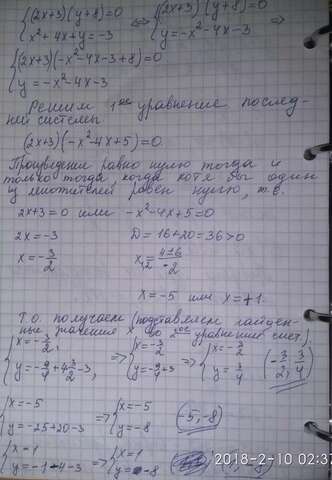 {(2x+3)(y+8)=0
x²+4x+y=-3 ⇔ {(2x+3)(y+8)=0
y=-x²-4x-3 ⇒
{(2x+3)(-x²-4x-3+8)=0
y=-x²-4x-3
Решим 1ое уравнение послед-
ней системы
(2x+3)(-x²-4x+5)=0.
Произведение равно нулю тогда и
только тогда когда хотя бы один
из множителей равен нулю, т.е.
2x+3=0 или -x²-4x+5=0
2x=-3 D=16+20=36>0
x=-3/2 x₁,₂=4±6/-2
x=-5 или x=+1.
Т.О. получаем (подставляем найден-
ные значения x во 2ое уравнение сист.)
{x=-3/2,
y=-9/4+4·3/2-3, ⇒ {x=-3/2
y=-9/4+3 ⇒ {x=-3/2
y=3/4 (-3/2, 3/4)
{x=-5
y=-25+20-3 ⇒ {x=-5
y=-8 (-5,-8)
{x=1
y=-1-4-3 ⇒ {x=1
y=-8 (1,-8)
2018-2-10 02:37